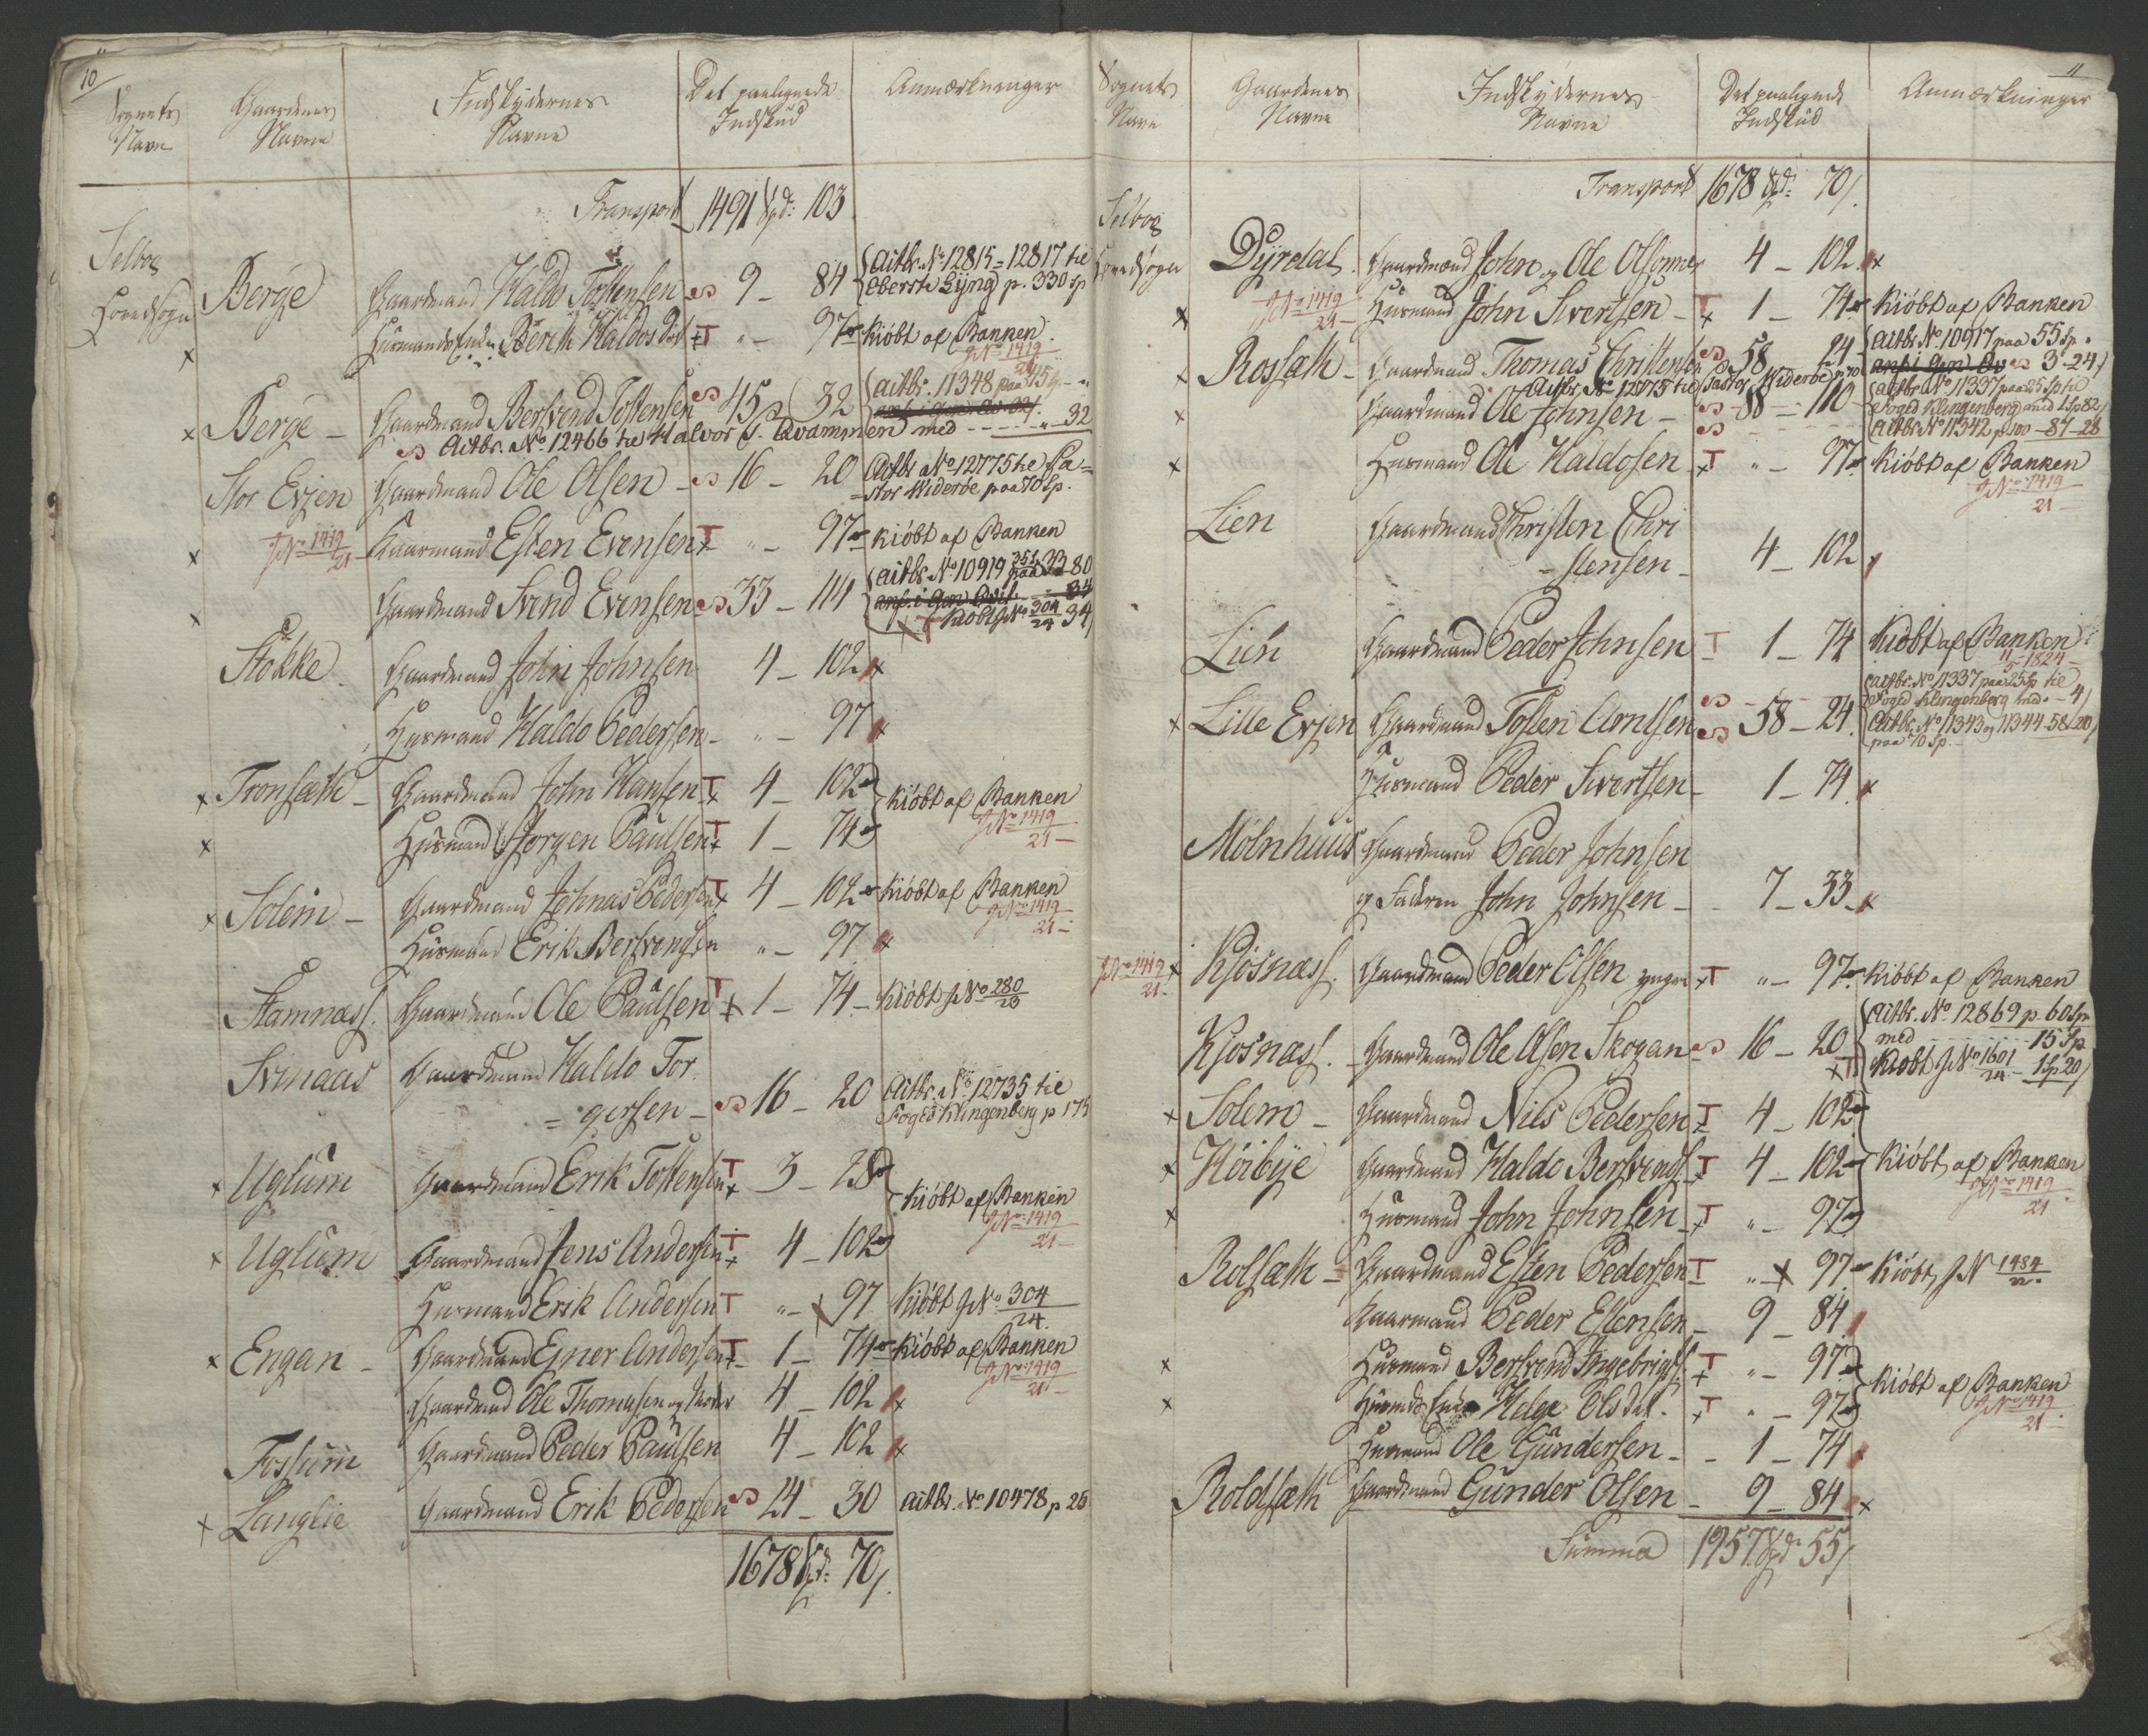 10
Sognets Navn
Gaardenes Navne
Indskydernes Navne
Det paalignede Indskud
Anmærkninger
Transport 1491 Spd: 103
Selboe Hovedsogn
Berge Gaardmand Haldo Tostensen 9 - 84 Actbr. No 12815 = 12817 til
Oberste Lÿng p. 330 Sp
Huusmands Enke Berith Haldos Dat T " - 97 Kiöbt af Banken
JNo 1419/21
Berge - Gaardmand Bersvend Tostensen 45 - 32 actbr. 11348 paa 45 Sp - "
Actbr. No 12466 til Halvor J. Qvammen med - - - " - 32
Stor Evjen Gaardmand Ole Olsen - 16 - 20 Actbr No 12775 til Pa=
=stor Widerøe paa 70 Sp.
JNo 1419/21 Gaarmand Esten Evensen T " - 97 Kiöbt af Banken
Gaardmand Svend Evensen 33 - 114 Actbr. No 10919 paa 33 80
Kiöbt JNo 304/24 34
Stokke Gaardmand John Johnsen 4 - 102
Husmand Haldo Pedersen - " - 97
Tronsæth - Gaardmand John Hansen T 4 - 102 Kiöbt af Banken
Husmand Jörgen Paulsen T 1 - 74 JNo 1419/21
Solem - Gaardmand Johnas Pedersen T 4 - 102 Kiöbt af Banken
JNo 1419/21
Husmand Erik Bersvendsen " - 97
Stamnæss. Gaardmand Ole Paulsen T 1 - 74 - Kiöbt JNo 280/23
Svinaas Gaardmand Haldo Tor
= gersen - 16 - 20 Actbr. No 12735 til
Foged Klingenberg p 175
Uglum Gaardmand Erik Tostensen T 3 - 28 Kiöbt af Banken
JNo 1419/21
Uglum Gaardmand Jens Andersen T 4 - 102
Husmand Erik Andersen T " - 97 Kiöbt JNo 304/24
Engan - Gaardmand Ejner Andersen T 1 - 74 Kiöbt af Banken
JNo 1419/21
Gaardmand Ole Thomasen og Moder 4 - 102
Fossum Gaardmand Peder Paulsen 4 - 102
Langlie Gaardmand Erik Pedersen 24 - 30 Actbr. No 10478 p 25
1678 Spd: 70 /.
11
Sognets Navn
Gaardenes Navne
Indskydernes Navne
Det paalignede Indskud
Anmærkninger
Transport 1678 Spd: 70 /.
Selboe Hovedsogn
Dÿrdal. Gaardmænd John og Ole Olsønner 4 - 102
JNo 1419/21 Husmand John Sivertsen - T 1 - 74 Kiöbt af Banken
Rossæth - Gaardmand Thomas Christensen 58 24 Actbr. No 10917 paa 55 Sp.
3 - 24
Actbr. No 12775 til Pastor Widerøe p 70
Gaardmand Ole Johnsen - 88 - 110 actbr No 11337 paa 25 Sp til
Foged Klingenberg med 1 Sp 82
Actbr No 11342 p 100 - 87 - 28
Husmand Ole Haldosen T " - 97 Kiöbt af Banken
JNo 1419/21
Lien Gaardmand Christen Chri
- stensen - 4 - 102
Lien Gaardmand Peder Johnsen T 1 - 74 Kiöbt af Banken
1824
Actbr. No 11337 paa 25 Sp til
Foged Klingenberg med - 4
Lille Evjen Gaardmand Tosten Arntsen 58 - 24. Actbr. No 11343 og 11344 58 20
paa 70 Sp.
Husmand Peder Sivertsen - 1 - 74
Mölnhuus Gaardmand Peder Johnsen
og Faderen John Johnsen - 7 - 33
JNo 1419/21 Kjösnæss. Gaardmand Peder Olsen yngre T " - 97 Kiöbt af Banken
Kjösnæss. - Gaardmand Ole Olsen Skogan 16 - 20 Actbr. No 12869 p 60 Sp
med - - - 15 Sp
T Kiöbt JNo 1601/24 - 1 Sp 20
Solem - Gaardmand Nils Pedersen T 4 - 102
Höibÿe Gaardmand Haldo Bersvends. T 4 - 102 Kiöbt af Banken
JNo 1419/21
Husmand John Johnsen T " - 97
Rolsæth - Gaardmand Esten Pedersen T " - 97 Kiöbt JN 1484/22
Gaarmand Peder Estensen - 9 - 84
Husmand Bersvend Ingebrigts. T " - 97 Kiöbt af Banken
Husmds Enke Helge Ols Dat. T " - 97 JNo 1419/21
Husmand Ole Gundersen - - 1 - 74
Roldsæth Gaardmand Gunder Olsen - 9 - 84
Summa 1957 Spd: 55 /